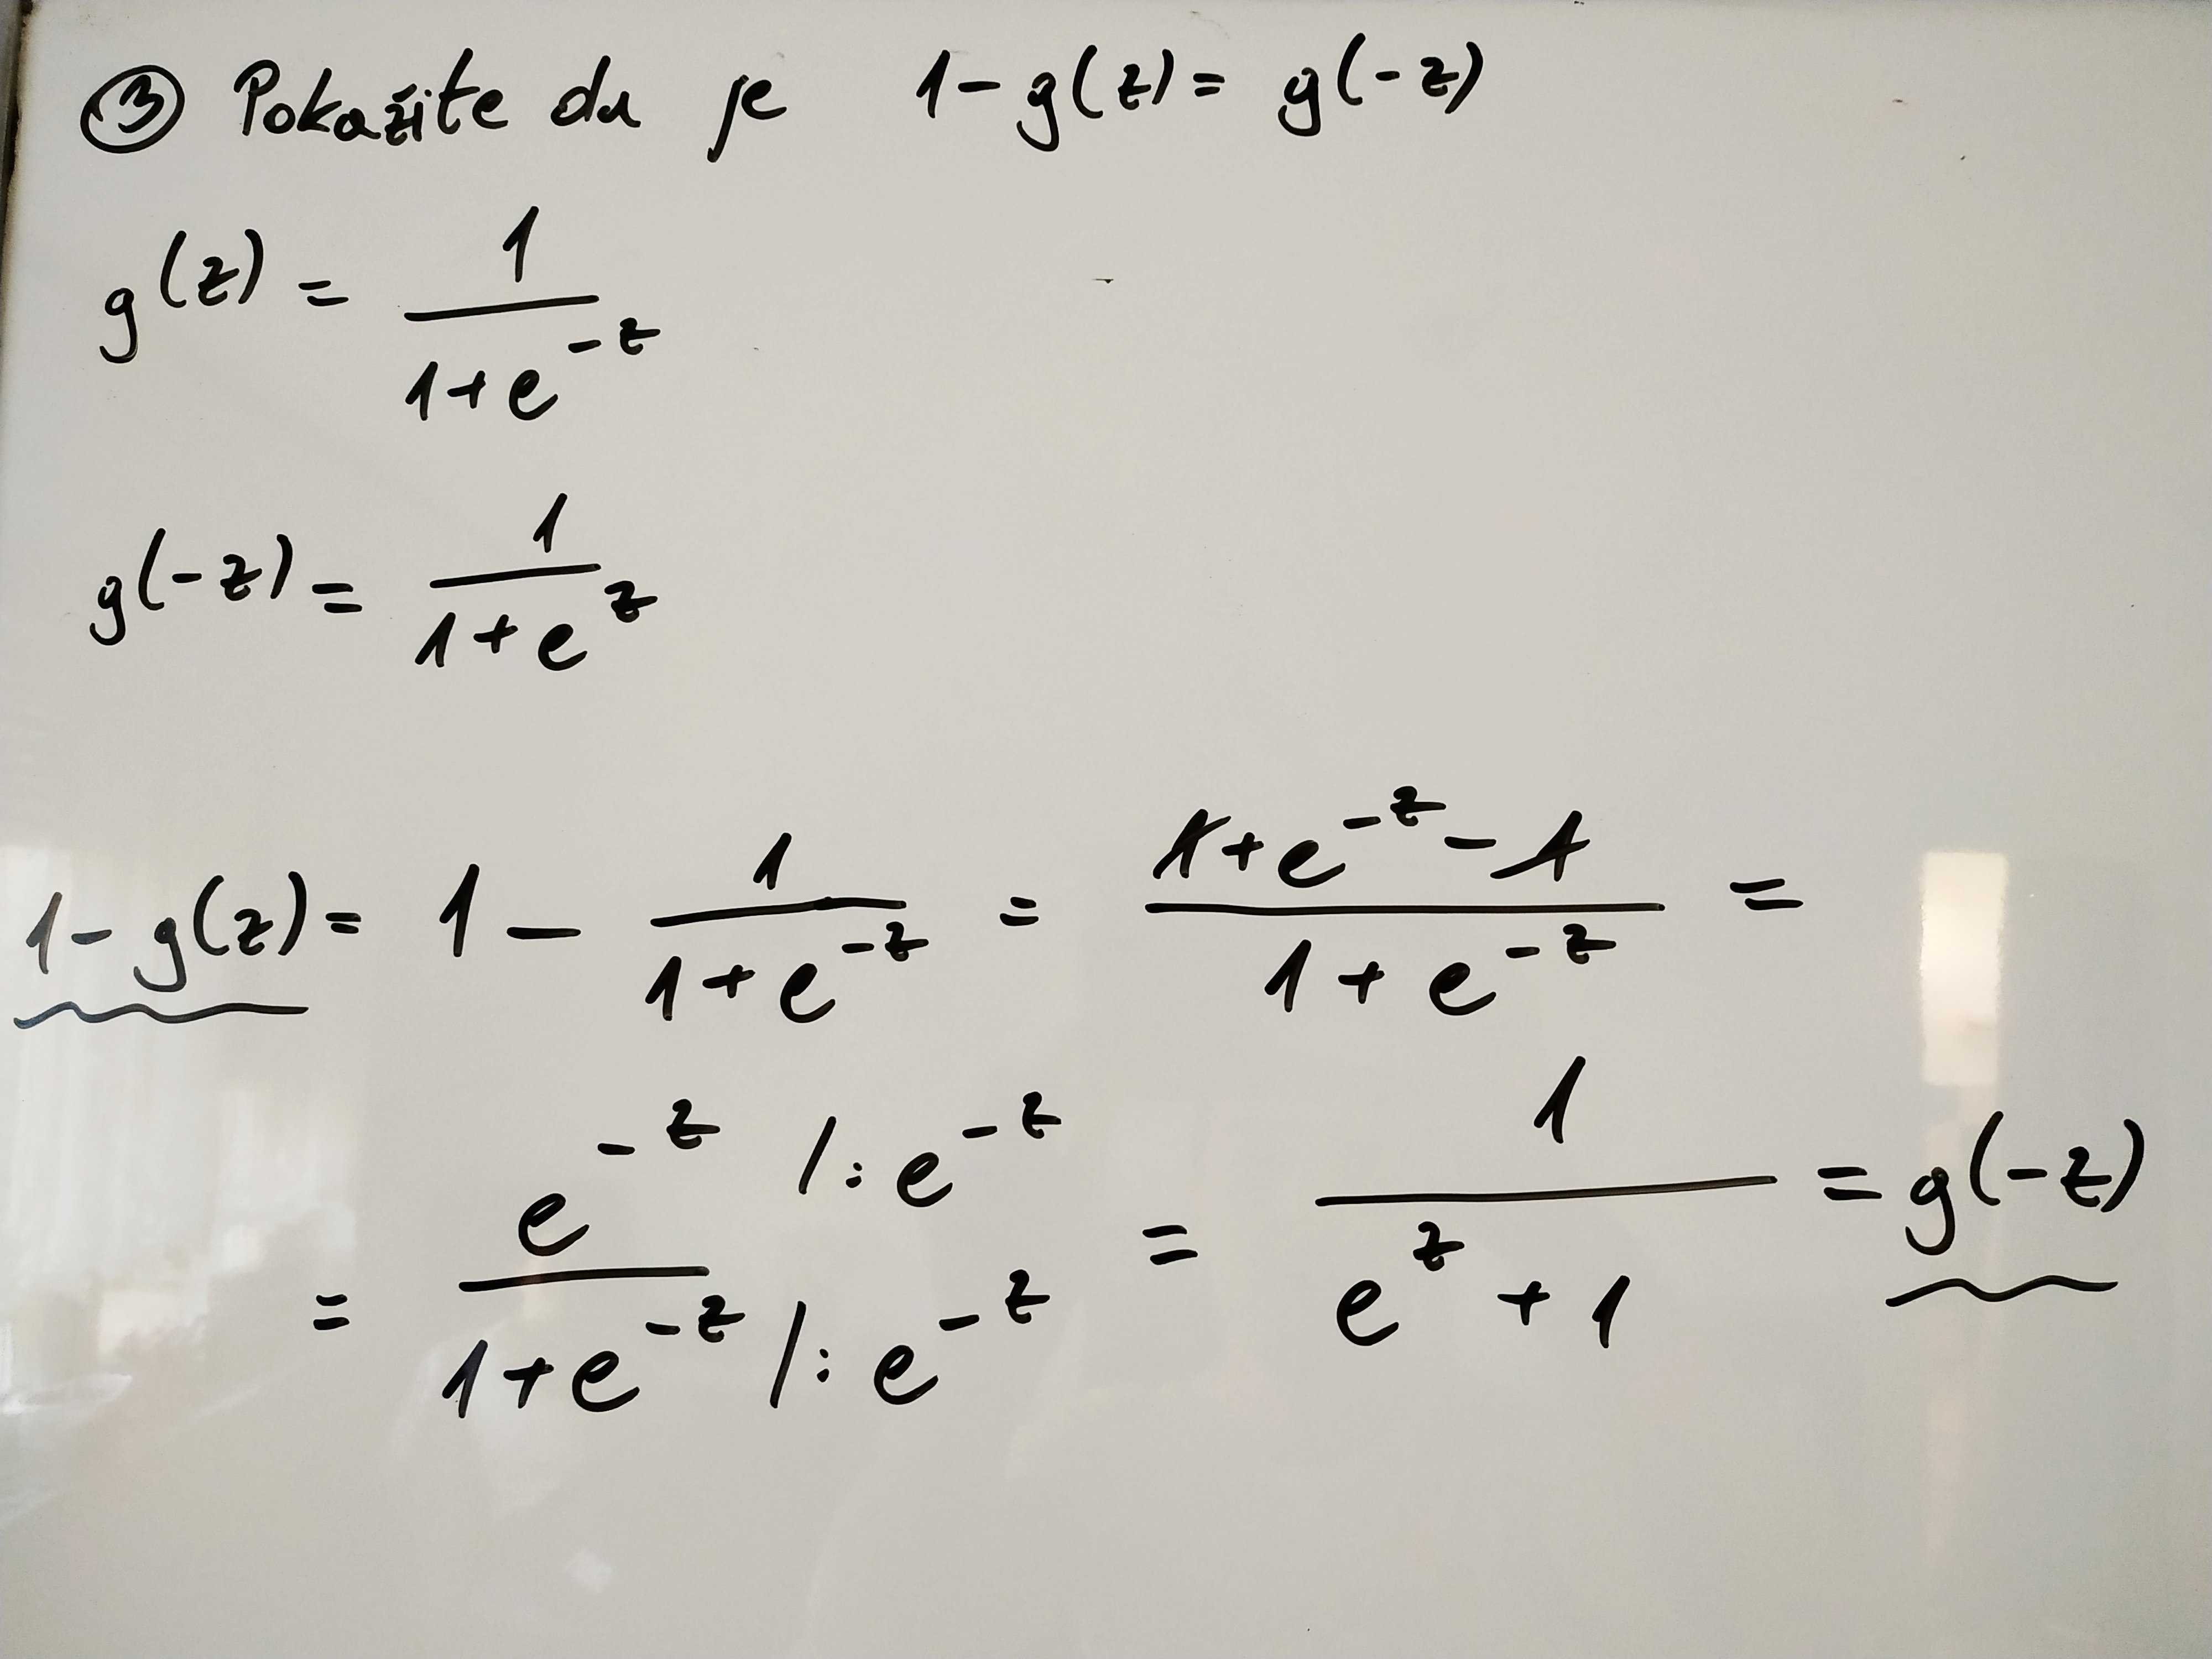 ③ Pokažite da je 1-g(z)= g(-z)
g(z) = 1/(1+e^{-z})
g(-z) = 1/(1+e^{z})
1-g(z)= 1 - 1/(1+e^{-z}) = (1+e^{-z}-1)/(1+e^{-z}) =
= (e^{-z} /:e^{-z})/(1+e^{-z} /:e^{-z}) = 1/(e^{z}+1) = g(-z)